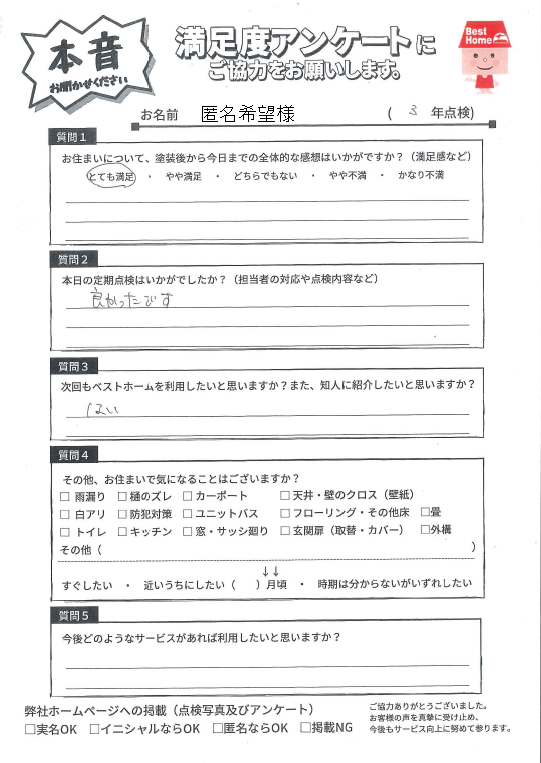 本音
お聞かせください
満足度アンケートに
ご協力をお願いします。
Best Home
お名前 匿名希望様 ( 3 年点検)
質問1
お住まいについて、塗装後から今日までの全体的な感想はいかがですか？（満足感など）
とても満足 ・ やや満足 ・ どちらでもない ・ やや不満 ・ かなり不満
質問2
本日の定期点検はいかがでしたか？（担当者の対応や点検内容など）
良かったです
質問3
次回もベストホームを利用したいと思いますか？また、知人に紹介したいと思いますか？
はい
質問4
その他、お住まいで気になることはございますか？
□ 雨漏り □ 樋のズレ □ カーポート □ 天井・壁のクロス（壁紙）
□ 白アリ □ 防犯対策 □ ユニットバス □ フローリング・その他床 □畳
□ トイレ □ キッチン □ 窓・サッシ廻り □ 玄関扉（取替・カバー） □外構
その他（ ）
↓↓
すぐしたい ・ 近いうちにしたい（ ）月頃 ・ 時期は分からないがいずれしたい
質問5
今後どのようなサービスがあれば利用したいと思いますか？
弊社ホームページへの掲載（点検写真及びアンケート）
□実名OK □イニシャルならOK □匿名ならOK □掲載NG
ご協力ありがとうございました。
お客様の声を真摯に受け止め、
今後もサービス向上に努めて参ります。